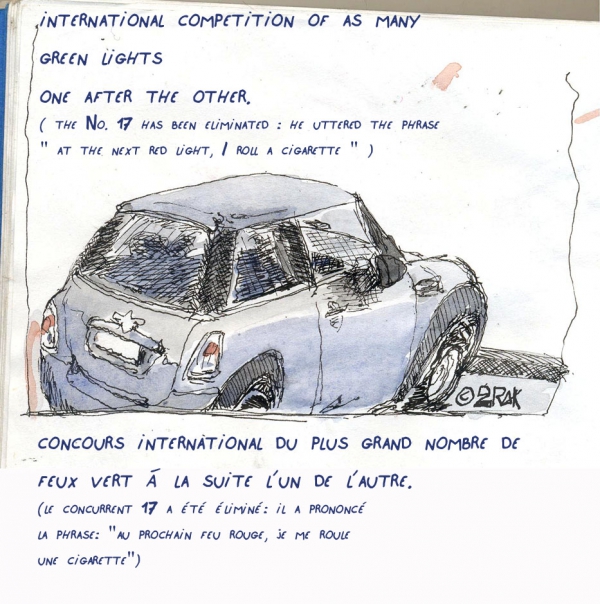 INTERNATIONAL COMPETITION OF AS MANY
GREEN LIGHTS
ONE AFTER THE OTHER.
( THE No. 17 HAS BEEN ELIMINATED : HE UTTERED THE PHRASE
" AT THE NEXT RED LIGHT, I ROLL A CIGARETTE " )
©2RAK
CONCOURS INTERNATIONAL DU PLUS GRAND NOMBRE DE
FEUX VERT Á LA SUITE L'UN DE L'AUTRE.
(LE CONCURRENT 17 A ÉTÉ ÉLIMINÉ: IL A PRONONCÉ
LA PHRASE: "AU PROCHAIN FEU ROUGE, JE ME ROULE
UNE CIGARETTE")